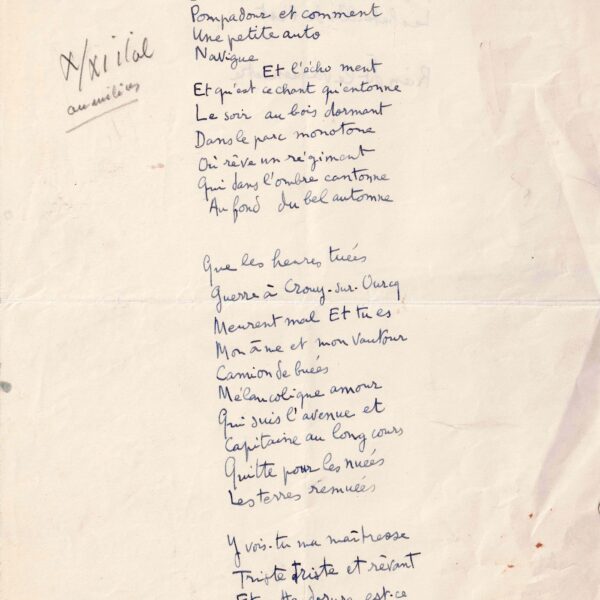 Pompadour et comment
Une petite auto
Navigue
Et l'écho ment
Et qu'est ce chant qu'entonne
Le soir au bois dormant
Dans le parc monotone
Où rêve un régiment
Qui dans l'ombre cantonne
Au fond du bel automne
Que les heures tuées
Guerre à Crouy-sur-Ourcq
Meurent mal Et tu es
Mon âme et mon vautour
Camion de buées
Mélancolique amour
Qui suis l'avenue et
Capitaine au long cours
Quitte pour les nuées
Les terres remuées
Y vois-tu ma maîtresse
Triste triste et rêvant
au milieu